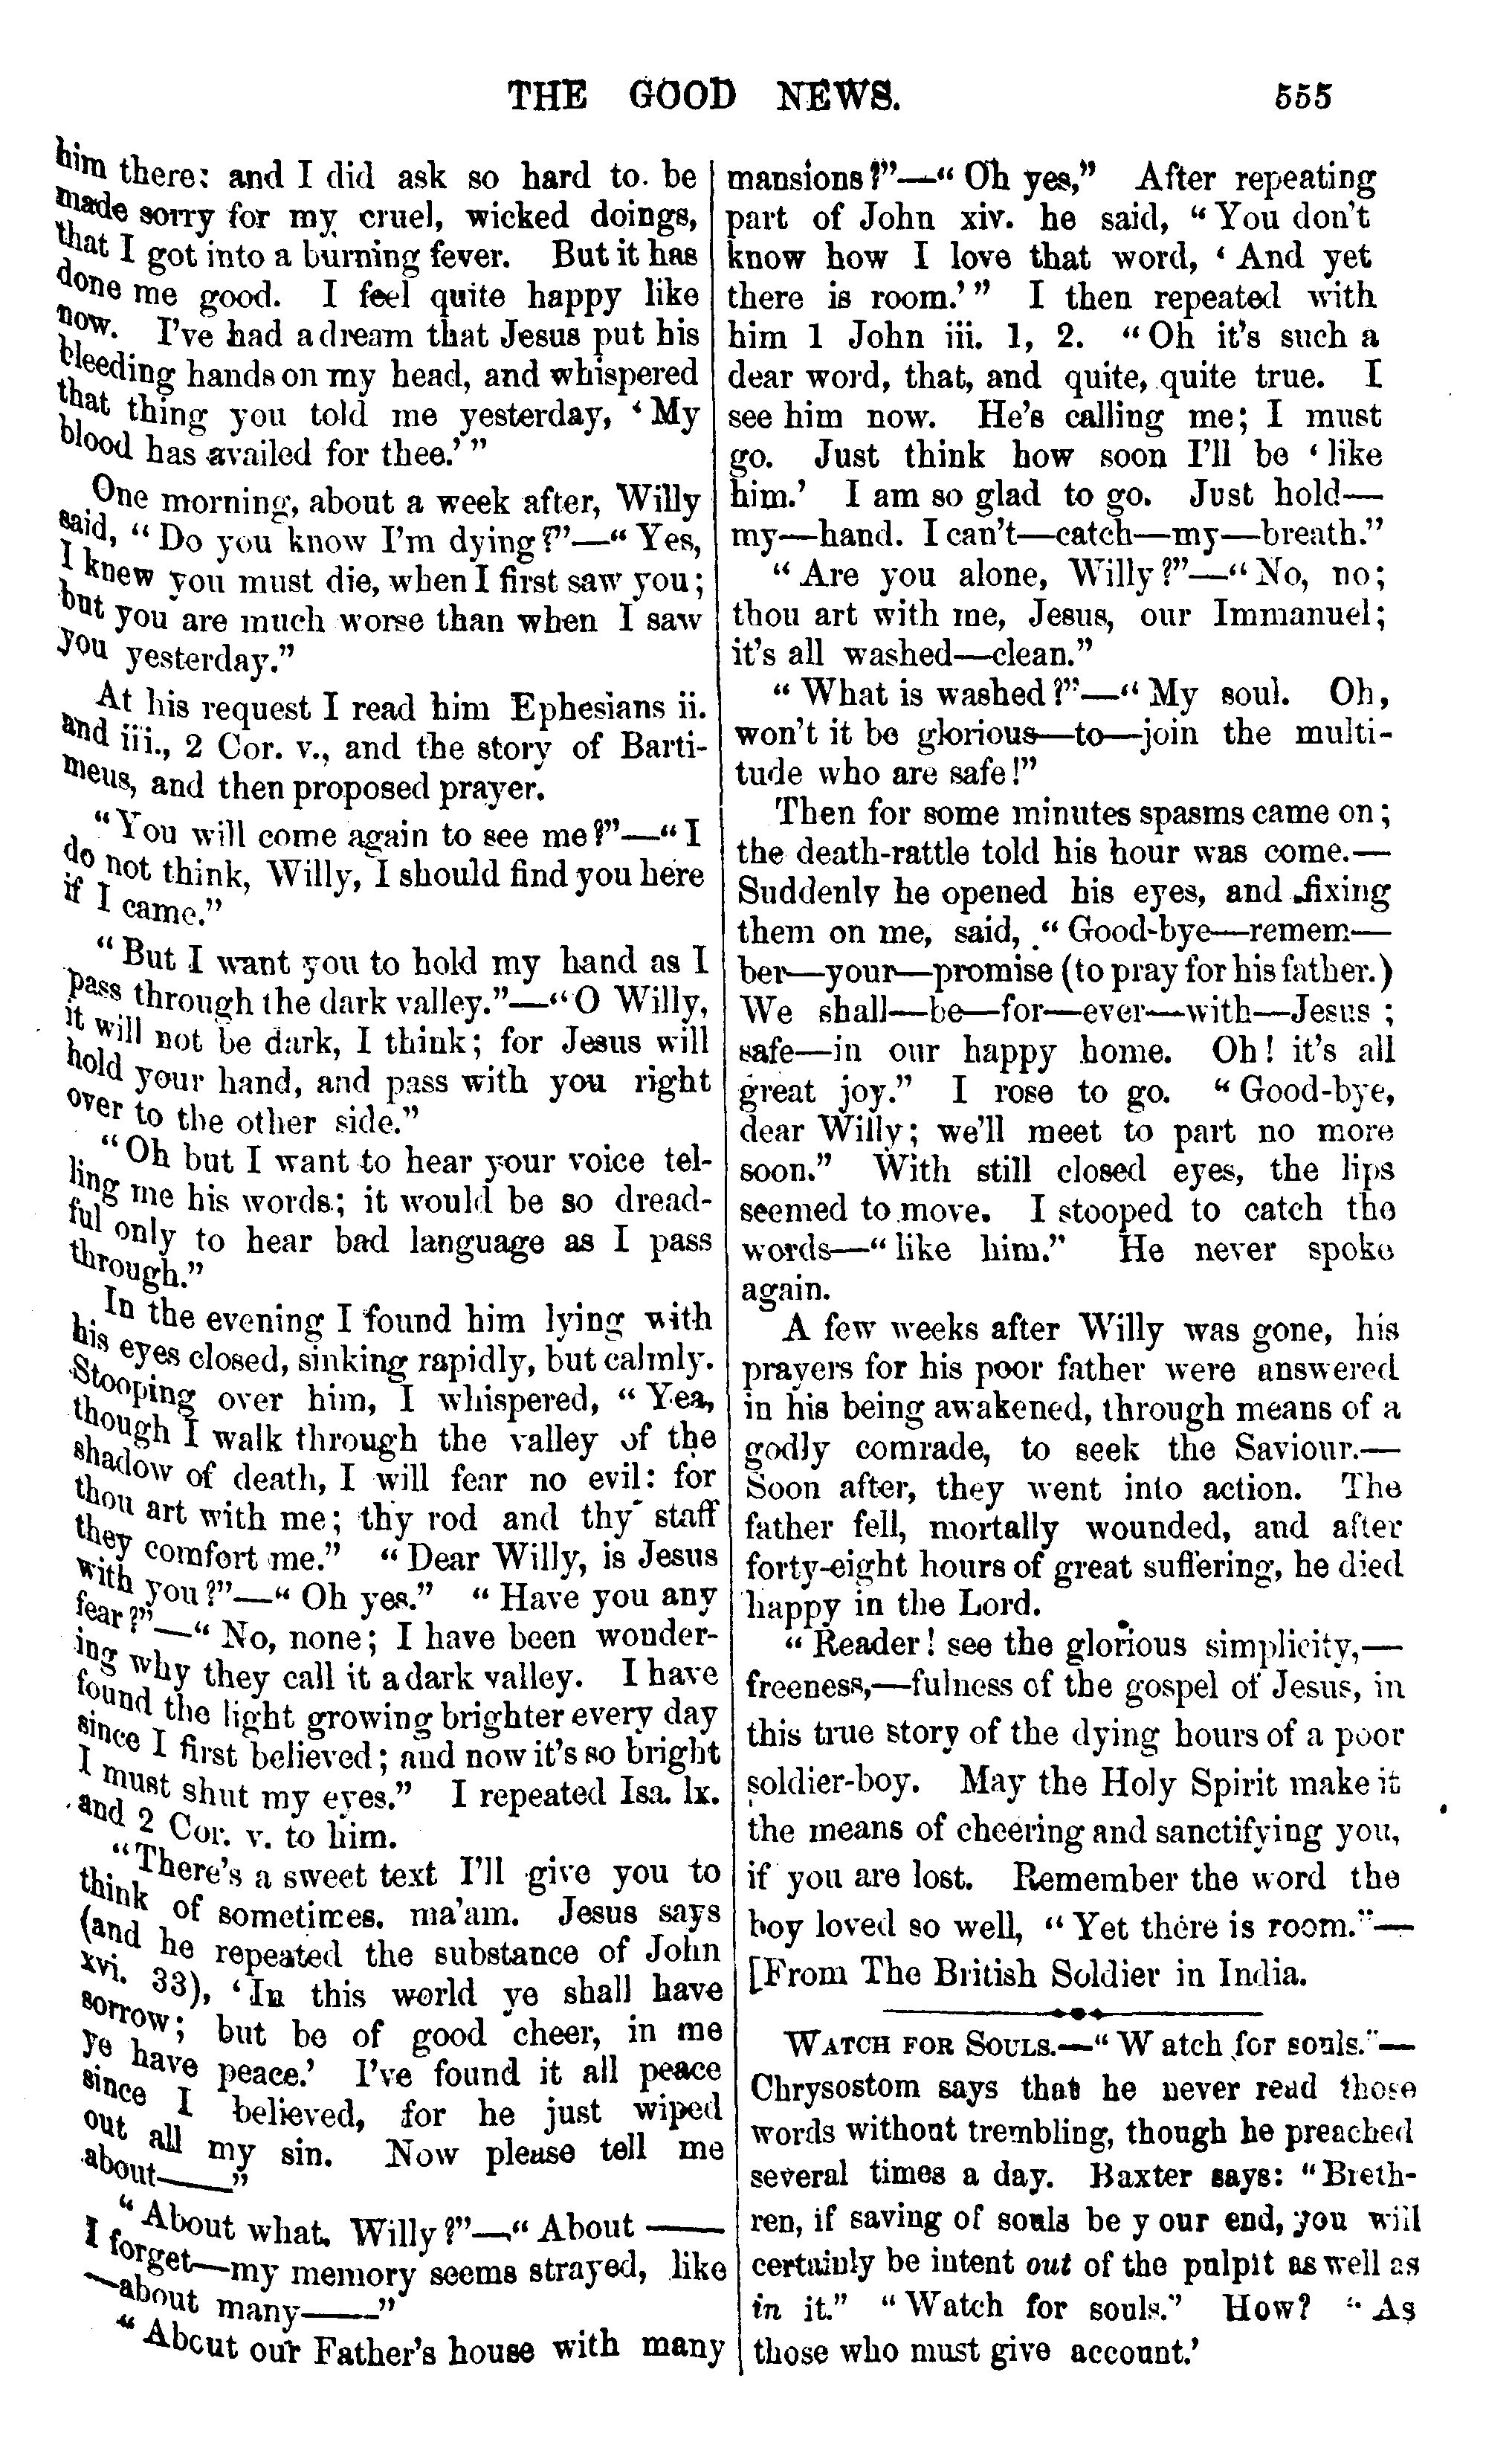 THE GOOD NEWS. 555
him there: and I did ask so hard to. be
made sorry for my cruel, wicked doings,
that I got into a burning fever. But it has
done me good. I feel quite happy like
now. I've had a dream that Jesus put his
bleeding hands on my head, and whispered
that thing you told me yesterday, ‘My
blood has availed for thee.’”
One morning, about a week after, Willy
said, “Do you know I'm dying?”—“Yes,
I knew you must die, when I first saw you;
but you are much worse than when I saw
you yesterday.”
At his request I read him Ephesians ii.
and iii., 2 Cor. v., and the story of Barti-
meus, and then proposed prayer.
“You will come again to see me?”—“I
do not think, Willy, I should find you here
if I came.”
“But I want you to hold my hand as I
pass through the dark valley.”—“O Willy,
it will not be dark, I think; for Jesus will
hold your hand, and pass with you right
over to the other side.”
“Oh but I want to hear your voice tel-
ling me his words; it would be so dread-
ful only to hear bad language as I pass
through.”
In the evening I found him lying with
his eyes closed, sinking rapidly, but calmly.
Stooping over him, I whispered, “Yea,
though I walk through the valley of the
shadow of death, I will fear no evil: for
thou art with me; thy rod and thy staff
they comfort me.” “Dear Willy, is Jesus
with you?”—“Oh yes.” “Have you any
fear?”—“No, none; I have been wonder-
ing why they call it a dark valley. I have
found the light growing brighter every day
since I first believed; and now it's so bright
I must shut my eyes.” I repeated Isa. lx.
and 2 Cor. v. to him.
“There's a sweet text I'll give you to
think of sometimes. ma'am. Jesus says
(and he repeated the substance of John
xvi. 33), ‘In this world ye shall have
sorrow; but be of good cheer, in me
ye have peace.’ I've found it all peace
since I believed, for he just wiped
out all my sin. Now please tell me
about——”
“About what, Willy?”—“About ——
I forget—my memory seems strayed, like
—about many——”
“About our Father's house with many
mansions?”—“Oh yes,” After repeating
part of John xiv. he said, “You don't
know how I love that word, ‘And yet
there is room.’” I then repeated with
him 1 John iii. 1, 2. “Oh it's such a
dear word, that, and quite, quite true. I
see him now. He's calling me; I must
go. Just think how soon I'll be ‘like
him.’ I am so glad to go. Just hold—
my—hand. I can't—catch—my—breath.”
“Are you alone, Willy?”—“No, no;
thou art with me, Jesus, our Immanuel;
it's all washed—clean.”
“What is washed?”—“My soul. Oh,
won't it be glorious—to—join the multi-
tude who are safe!”
Then for some minutes spasms came on;
the death-rattle told his hour was come.—
Suddenly he opened his eyes, and fixing
them on me, said, “Good-bye—remem—
ber—your—promise (to pray for his father.)
We shall—be—for—ever—with—Jesus;
safe—in our happy home. Oh! it's all
great joy.” I rose to go. “Good-bye,
dear Willy; we'll meet to part no more
soon.” With still closed eyes, the lips
seemed to move. I stooped to catch the
words—“like him.” He never spoke
again.
A few weeks after Willy was gone, his
prayers for his poor father were answered
in his being awakened, through means of a
godly comrade, to seek the Saviour.—
Soon after, they went into action. The
father fell, mortally wounded, and after
forty-eight hours of great suffering, he died
happy in the Lord.
“Reader! see the glorious simplicity,—
freeness,—fulness of the gospel of Jesus, in
this true story of the dying hours of a poor
soldier-boy. May the Holy Spirit make it
the means of cheering and sanctifying you,
if you are lost. Remember the word the
boy loved so well, “Yet there is room.”—
[From The British Soldier in India.
WATCH FOR SOULS.—“Watch for souls.”—
Chrysostom says that he never read those
words without trembling, though he preached
several times a day. Baxter says: “Breth-
ren, if saving of souls be your end, you will
certainly be intent out of the pulpit as well as
in it.” “Watch for souls.” How? “As
those who must give account.’